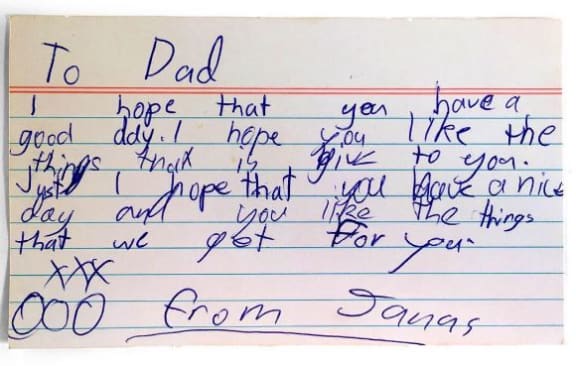 To Dad
I hope that you have a
good day. I hope you like the
things that is give to you.
Just I hope that you have a nice
day and you like the things
that we got for you.
XXX
OOO from Janas